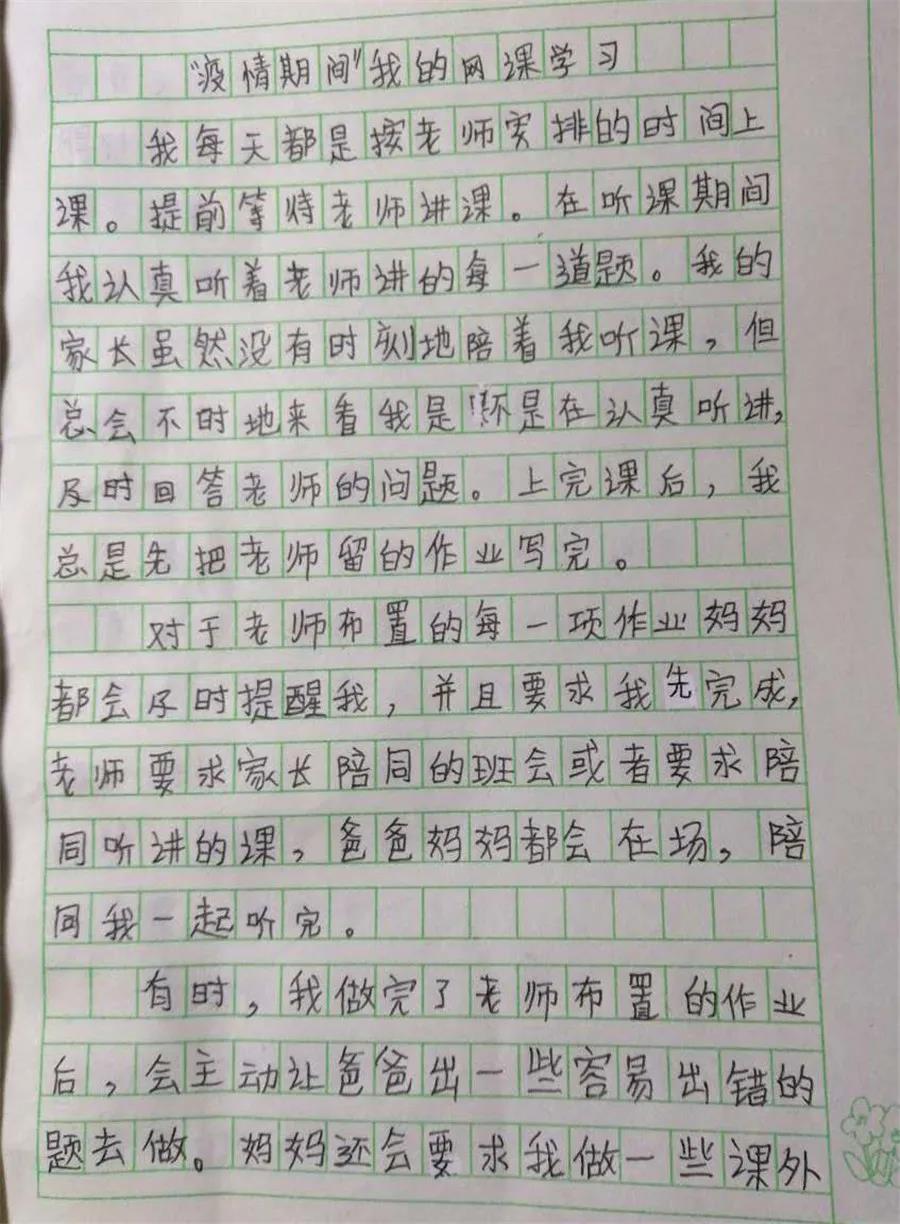 "疫情期间"我的网课学习
我每天都是按老师安排的时间上
课。提前等待老师讲课。在听课期间
我认真听着老师讲的每一道题。我的
家长虽然没有时刻地陪着我听课,但
总会不时地来看我是不是在认真听讲,
及时回答老师的问题。上完课后,我
总是先把老师留的作业写完。
对于老师布置的每一项作业妈妈
都会及时提醒我,并且要求我先完成,
老师要求家长陪同的班会或者要求陪
同听讲的课,爸爸妈妈都会在场,陪
同我一起听完。
有时,我做完了老师布置的作业
后,会主动让爸爸出一些容易出错的
题去做。妈妈还会要求我做一些课外